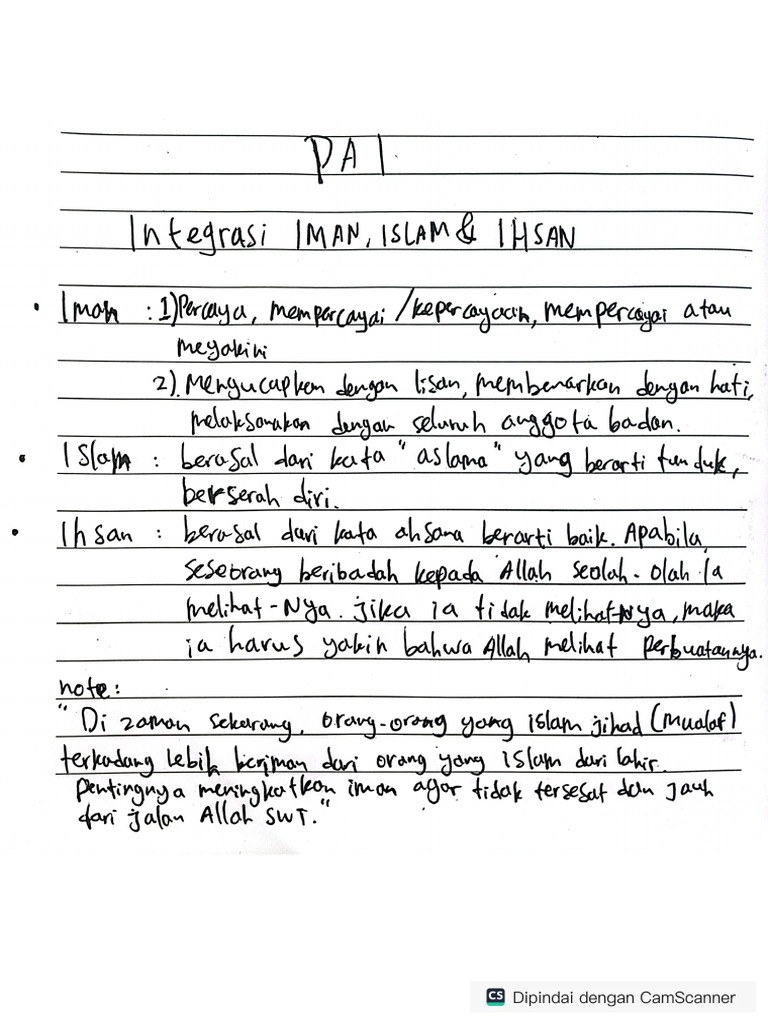 PAI.
Integrasi IMAN, ISLAM & IHSAN
• Iman : 1) Percaya, mempercayai / kepercayaan, mempercayai atau
meyakini
2). Mengucapkan dengan lisan, membenarkan dengan hati,
melaksanakan dengan seluruh anggota badan.
• Islam : berasal dari kata "aslama" yang berarti tunduk,
berserah diri.
• Ihsan : berasal dari kata ahsana berarti baik. Apabila
seseorang beribadah kepada Allah seolah-olah ia
melihat-Nya. jika ia tidak melihat-nya, maka
ia harus yakin bahwa Allah melihat perbuatannya.
note:
"Di zaman sekarang, orang-orang yang islam jihad (mualaf)
terkadang lebih beriman dari orang yang islam dari lahir.
pentingnya meningkatkan iman agar tidak tersesat dan jauh
dari jalan Allah SWT."
CS Dipindai dengan CamScanner